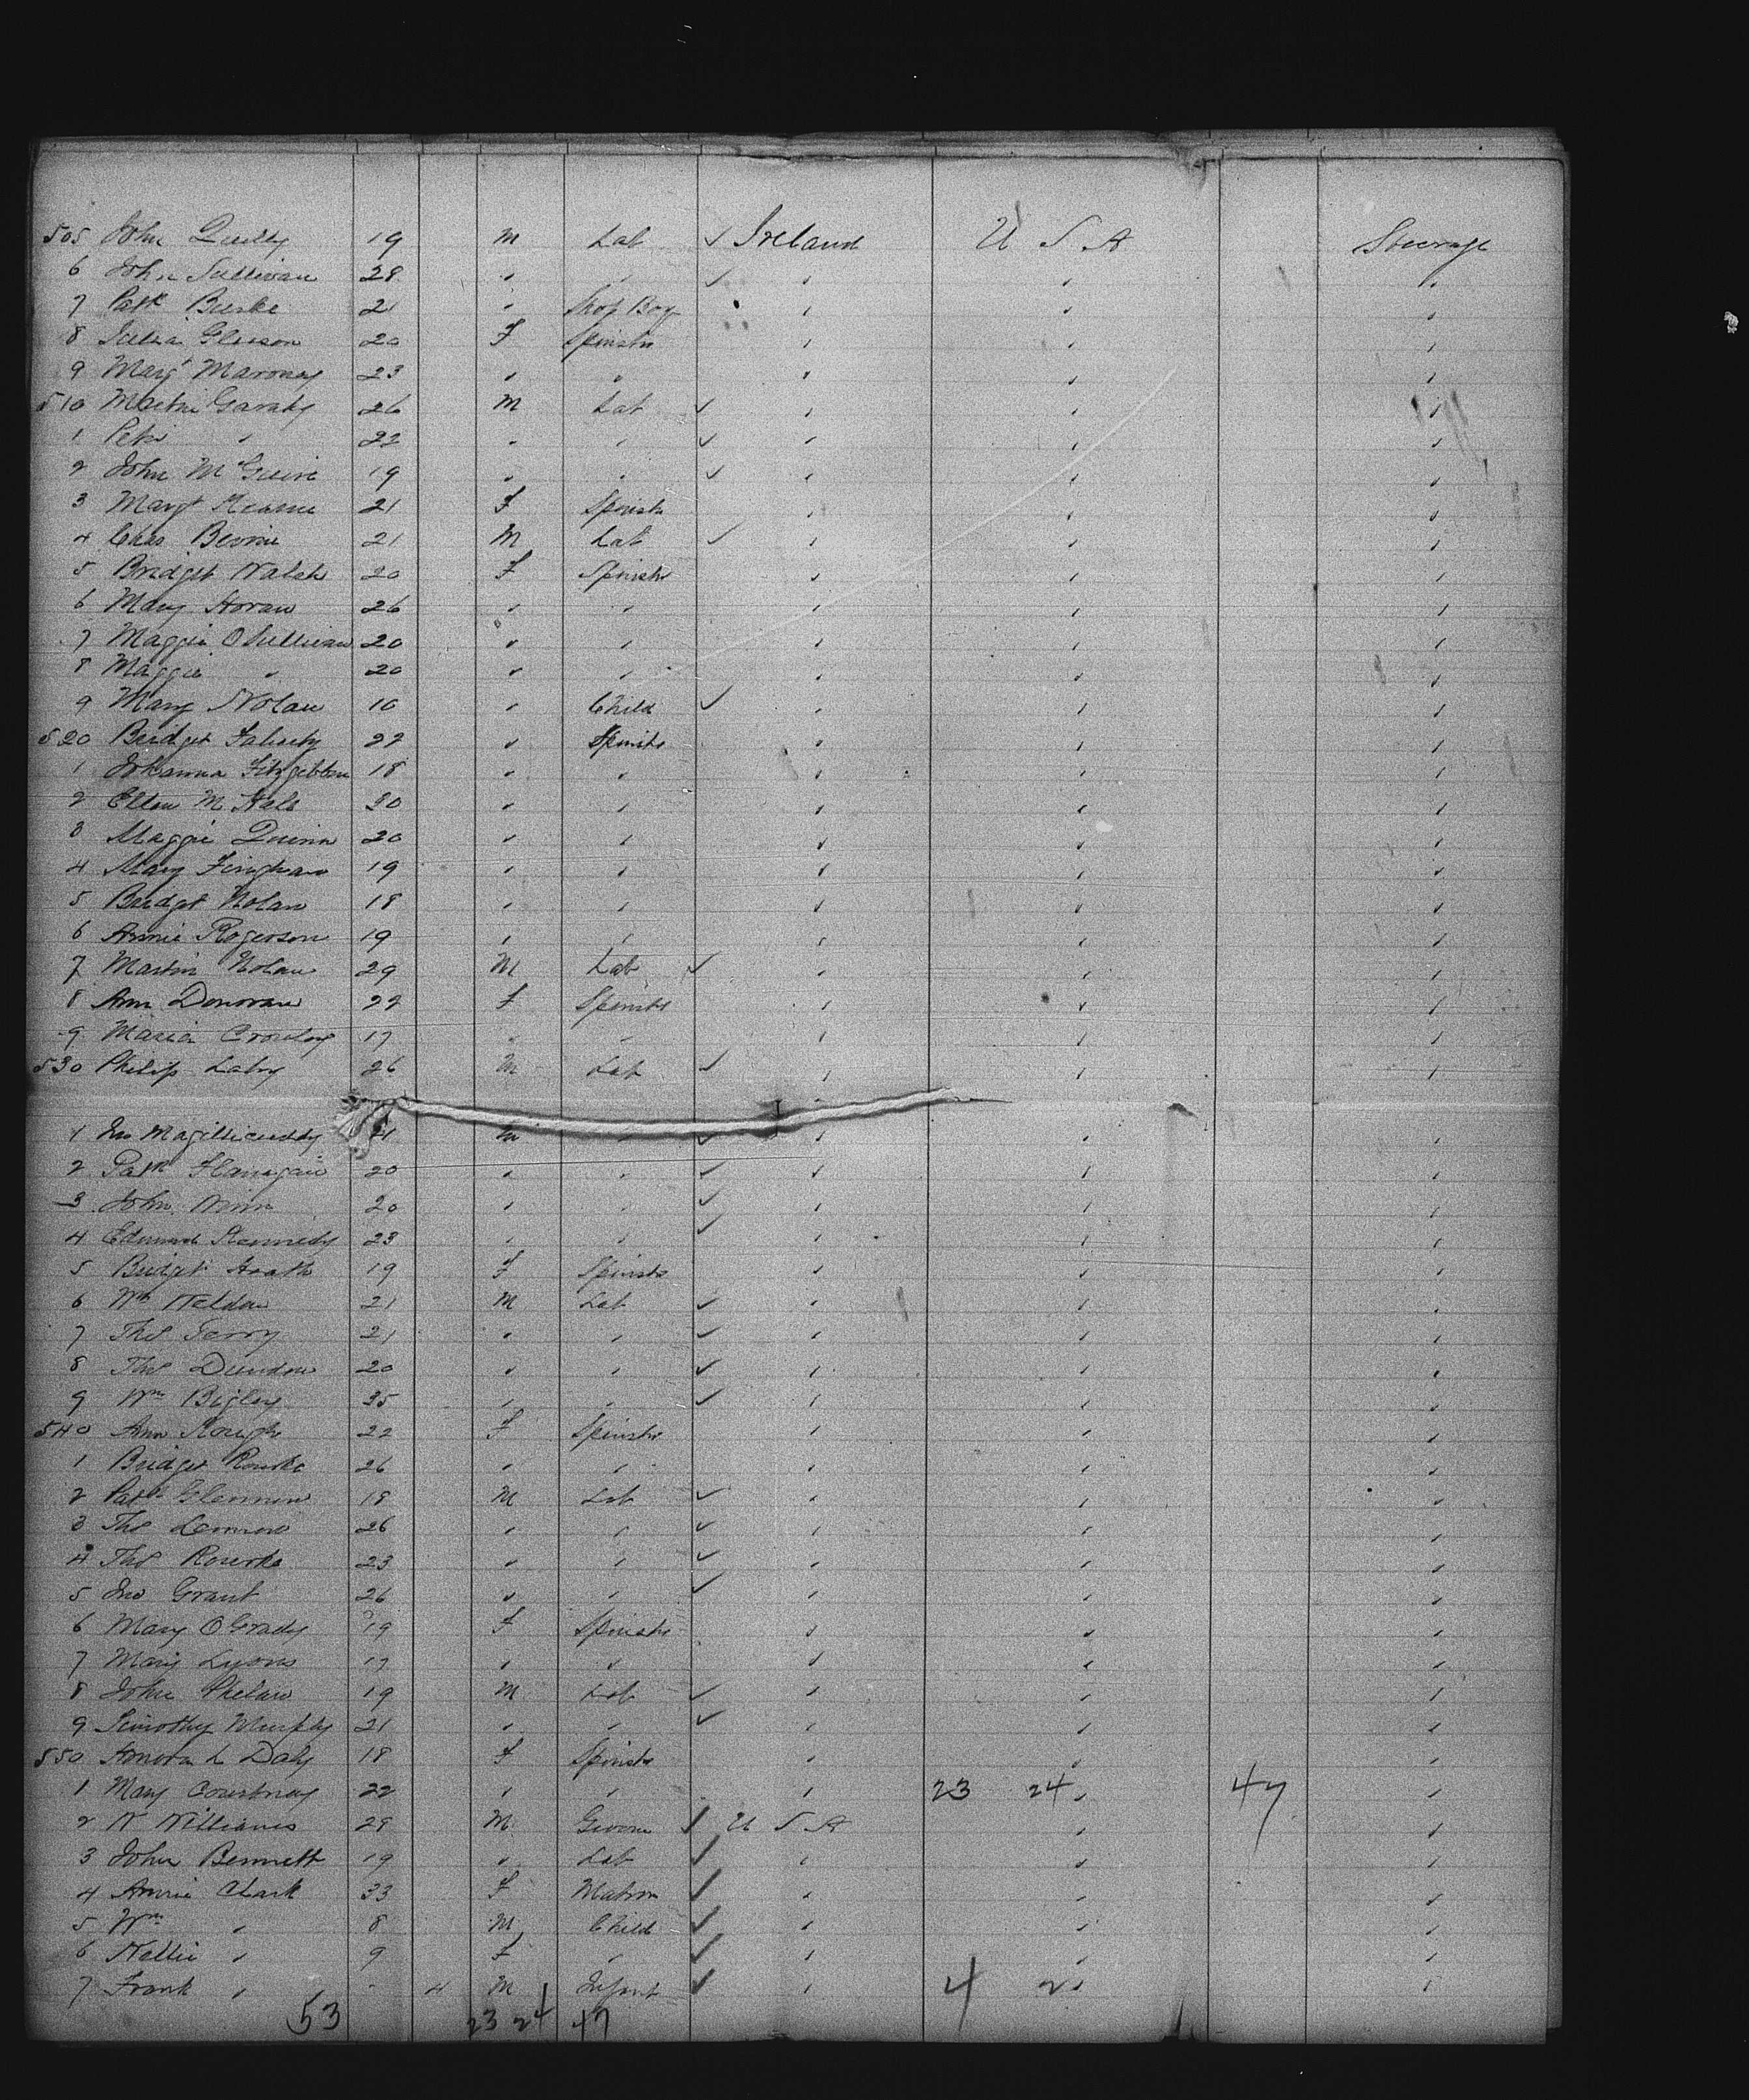 505 John Quilty 19 M Lab ✓ Ireland U S A Steerage
6 John Sullivan 28 " " ✓ " " "
7 Patk Burke 21 " Shop Boy " " "
8 Julia Gleeson 20 F Spinstr " " "
9 Margt Maroney 23 " " " " "
510 Martin Garahy 26 M Lab ✓ " " "
1 Peter " 22 " " ✓ " " "
2 John McGuire 19 " " ✓ " " "
3 Margt 21 F Spinstr " " "
4 Chas 21 M Lab ✓ " " "
5 Bridget Walsh 20 F Spinstr " " "
6 Mary Horan 26 " " " " "
7 Maggie OSullivan 20 " " " " "
8 Maggie " 20 " " " " "
9 Mary Nolan 10 " Child ✓ " " "
520 Bridget 22 " Spinstr " " "
1 Johanna Fitzgibbon 18 " " " " "
2 Ellen 20 " " " " "
3 Maggie Quinn 20 " " " " "
4 Mary 19 " " " " "
5 Bridget Nolan 18 " " " " "
6 Annie Rogerson 19 " " " " "
7 Martin Nolan 29 M Lab ✓ " " "
8 Ann Donovan 22 F Spinstr " " "
9 Maria Crowley 17 " " " " "
530 Philip 26 M Lab ✓ " " "
1 Jno Magillicuddy 21 M " ✓ " " "
2 Patk Flanagan 20 " " ✓ " " "
3 John 20 " " ✓ " " "
4 Edmund Kennedy 23 " " ✓ " " "
5 Bridget Heath 19 F Spinstr " " "
6 Wm 21 M Lab ✓ " " "
7 Thos Terry 21 " " ✓ " " "
8 Thos Dundon 20 " " ✓ " " "
9 Wm Bigley 35 " " ✓ " " "
540 Ann 22 F Spinstr " " "
1 Bridget Rourke 26 " " " " "
2 Patk Glennon 18 M Lab ✓ " " "
3 Thos Lennon 26 " " ✓ " " "
4 Thos Rourke 23 " " ✓ " " "
5 Jno Grant 26 " " ✓ " " "
6 Mary OGrady 19 F Spinstr " " "
7 Mary Lyons 17 " " " " "
8 John Phelan 19 M Lab ✓ " " "
9 Timothy Murphy 21 " " ✓ " " "
550 Honora L Daly 18 F Spinstr " " "
1 Mary Courtnay 22 " " " 23 24 " 47 "
2 W Williams 29 M Groom ✓ U S A " "
3 John Bennett 19 " Lab ✓ " " "
4 Annie Clark 33 F Matron ✓ " " "
5 Wm " 8 M Child ✓ " " "
6 Nellie " 9 F " ✓ " " "
7 Frank " - 4 M Infant ✓ " 4 2 " "
53 23 24 47